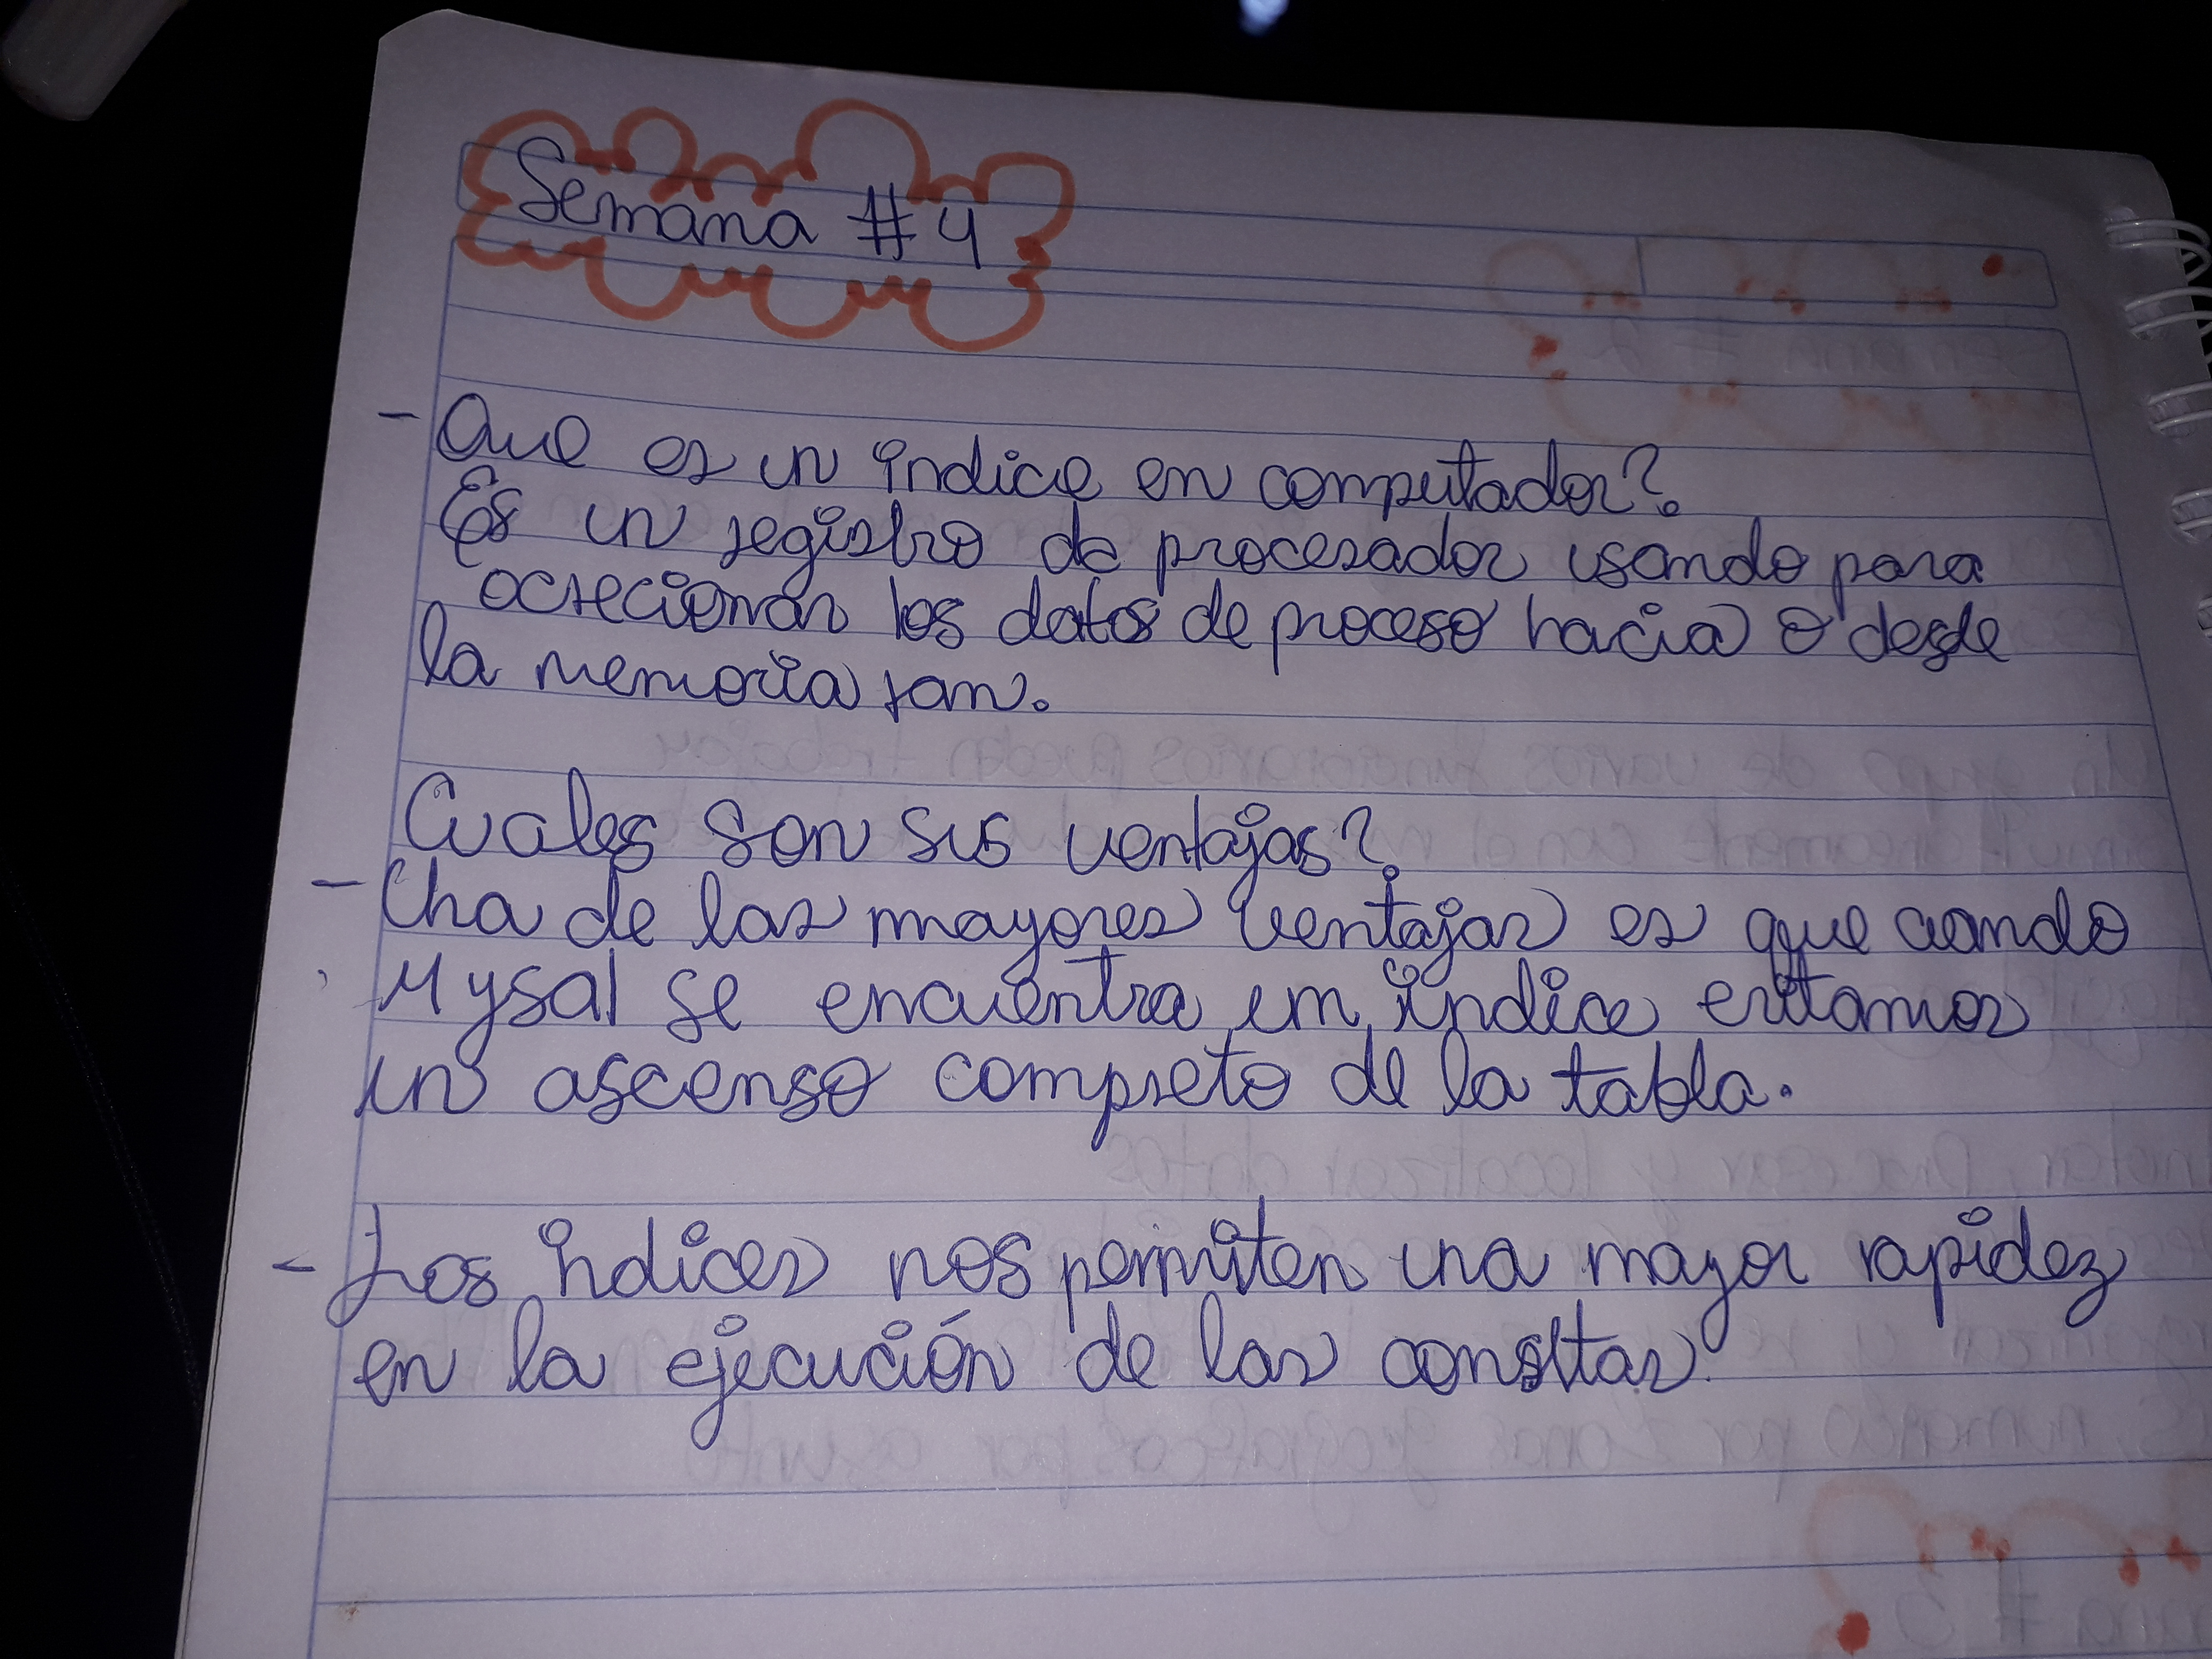 Semana #4
- Que es un índice en computador?
Es un registro de procesador usando para
ocrecionar los datos de proceso hacia o desde
la memoria ram.
Cuales son sus ventajas?
- Una de las mayores ventajas es que cuando
Mysal se encuentra un índice evitamos
un ascenso compreto de la tabla.
- Los indices nos permiten una mayor rapidez
en la ejecución de las consltas.